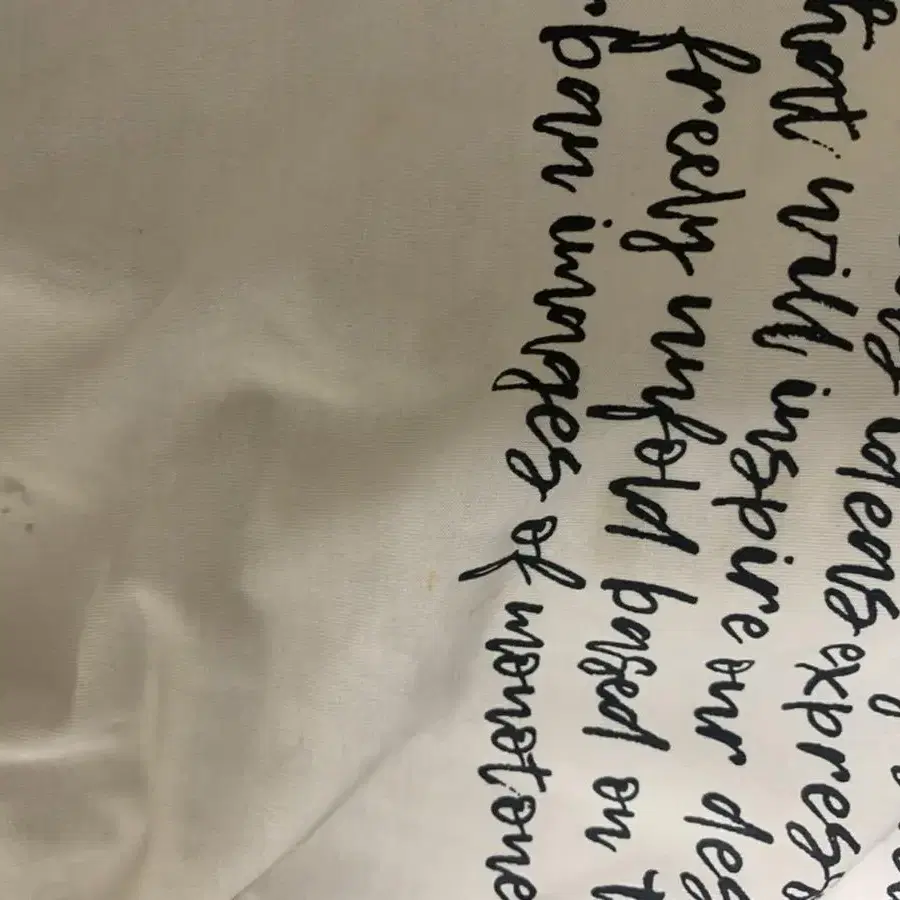 ideas express
that will inspire our des
freely unfold based on t
rban images of monotone